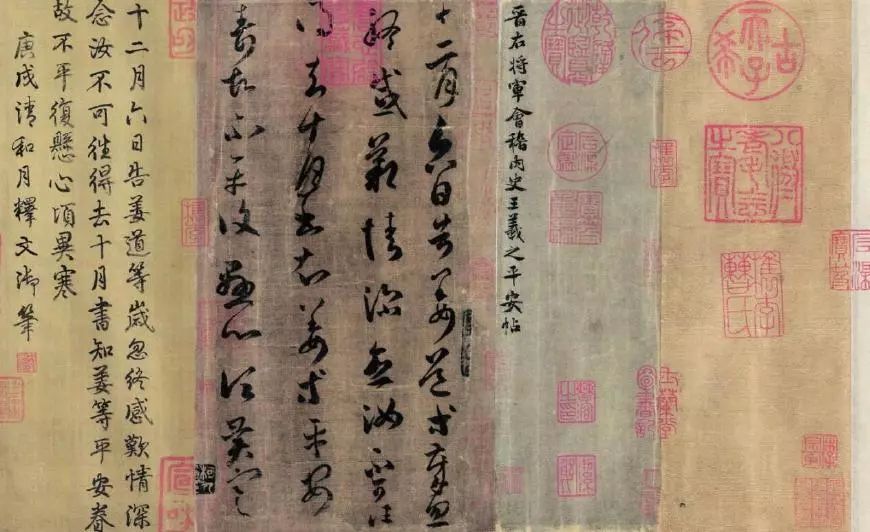 古稀天子
八徵耄念之寶
乾隆御覽之寶
晉右将軍會稽内史王羲之平安帖
十二月六日告姜道等歲忽
終感歎情深念汝不可往
得去十月書知姜等平安
壽故不平復懸心頃異寒
十二月六日告姜道等歲忽終感歎情深
念汝不可往得去十月書知姜等平安眷
故不平復懸心頃異寒
庚戌清和月釋文御筆